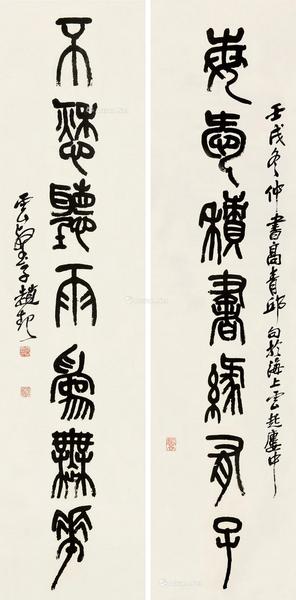 每愛積書緣有子
壬戌冬仲書高青邱句於海上雲起廔中
不愁聽雨為無華
雲壑子趙起